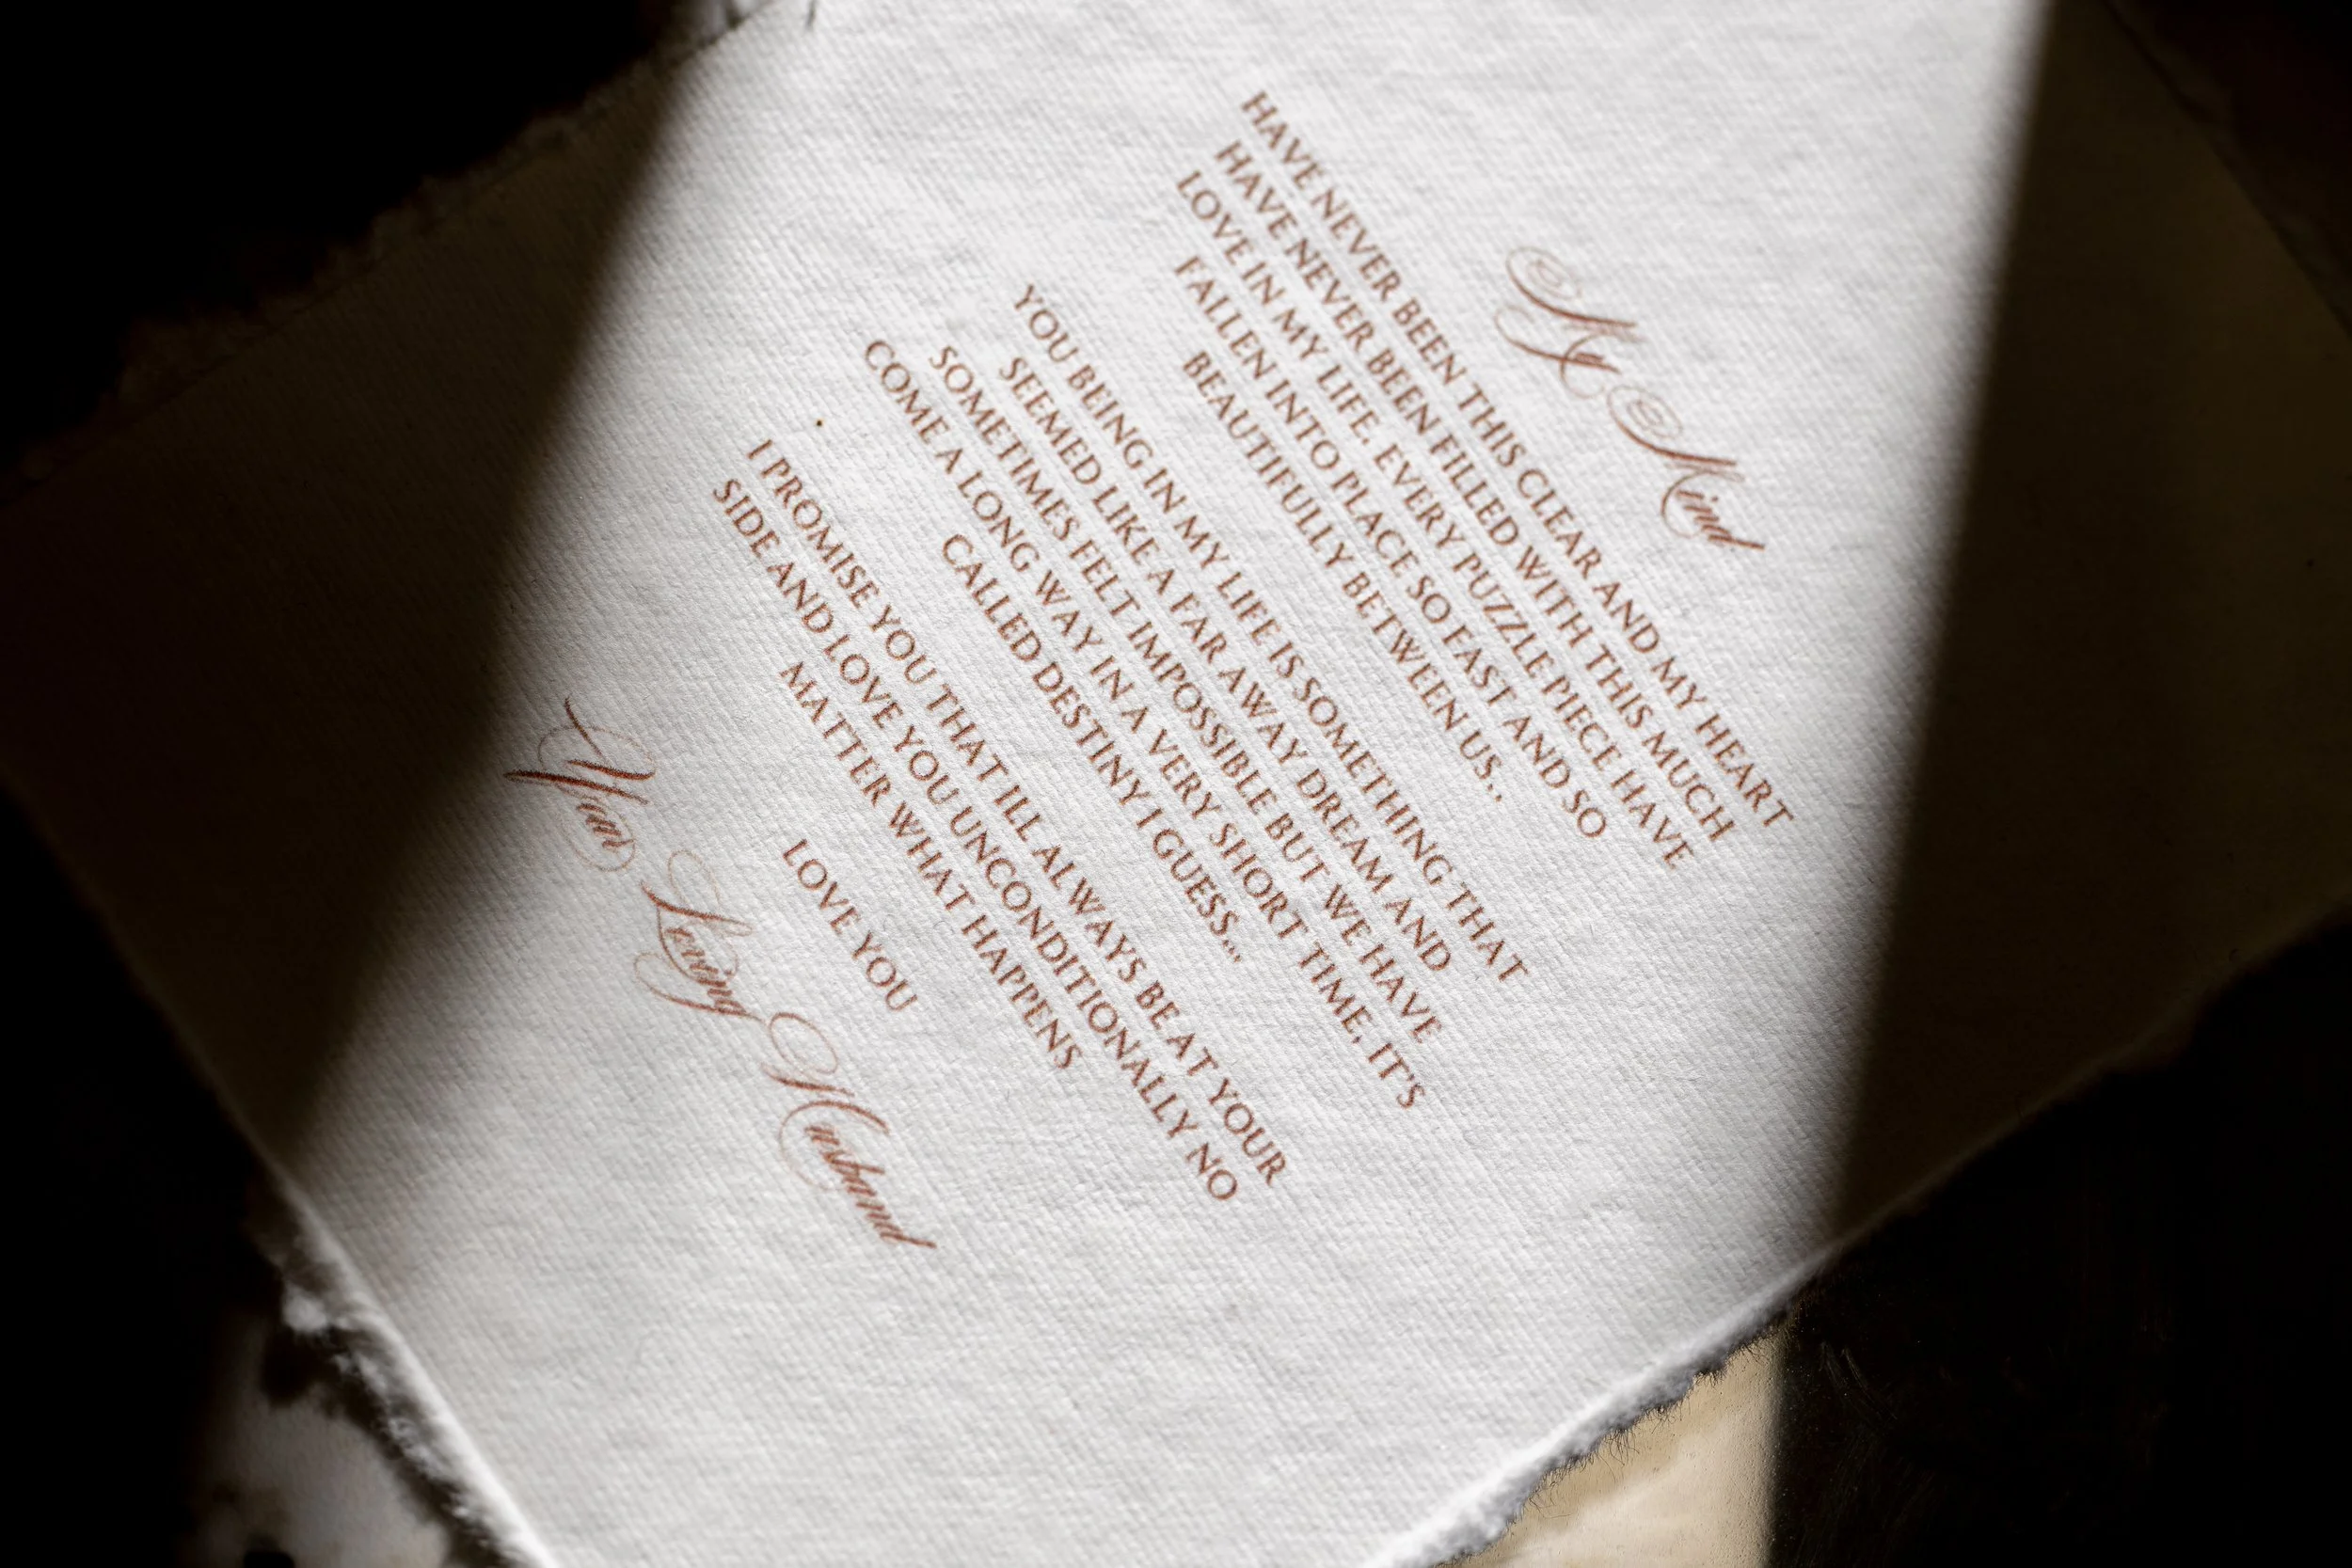 My Mind
HAVE NEVER BEEN THIS CLEAR AND MY HEART
HAVE NEVER BEEN FILLED WITH THIS MUCH
LOVE IN MY LIFE. EVERY PUZZLE PIECE HAVE
FALLEN INTO PLACE SO FAST AND SO
BEAUTIFULLY BETWEEN US...
YOU BEING IN MY LIFE IS SOMETHING THAT
SEEMED LIKE A FAR AWAY DREAM AND
SOMETIMES FELT IMPOSSIBLE BUT WE HAVE
COME A LONG WAY IN A VERY SHORT TIME, IT'S
CALLED DESTINY I GUESS...
I PROMISE YOU THAT ILL ALWAYS BE AT YOUR
SIDE AND LOVE YOU UNCONDITIONALLY NO
MATTER WHAT HAPPENS
LOVE YOU
Your Loving Husband